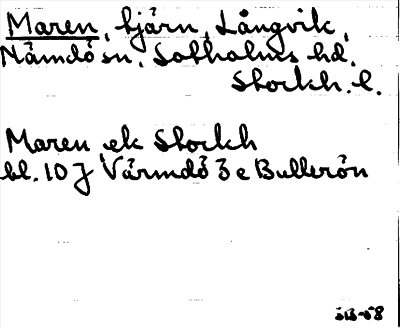 Maren, tjärn, Långvik,
Nämdö sn, Sotholms hd.
Stockh. l.
Maren, ek Stockh
bl. 10 J Värmdö 3 e Bullerön
SB-58